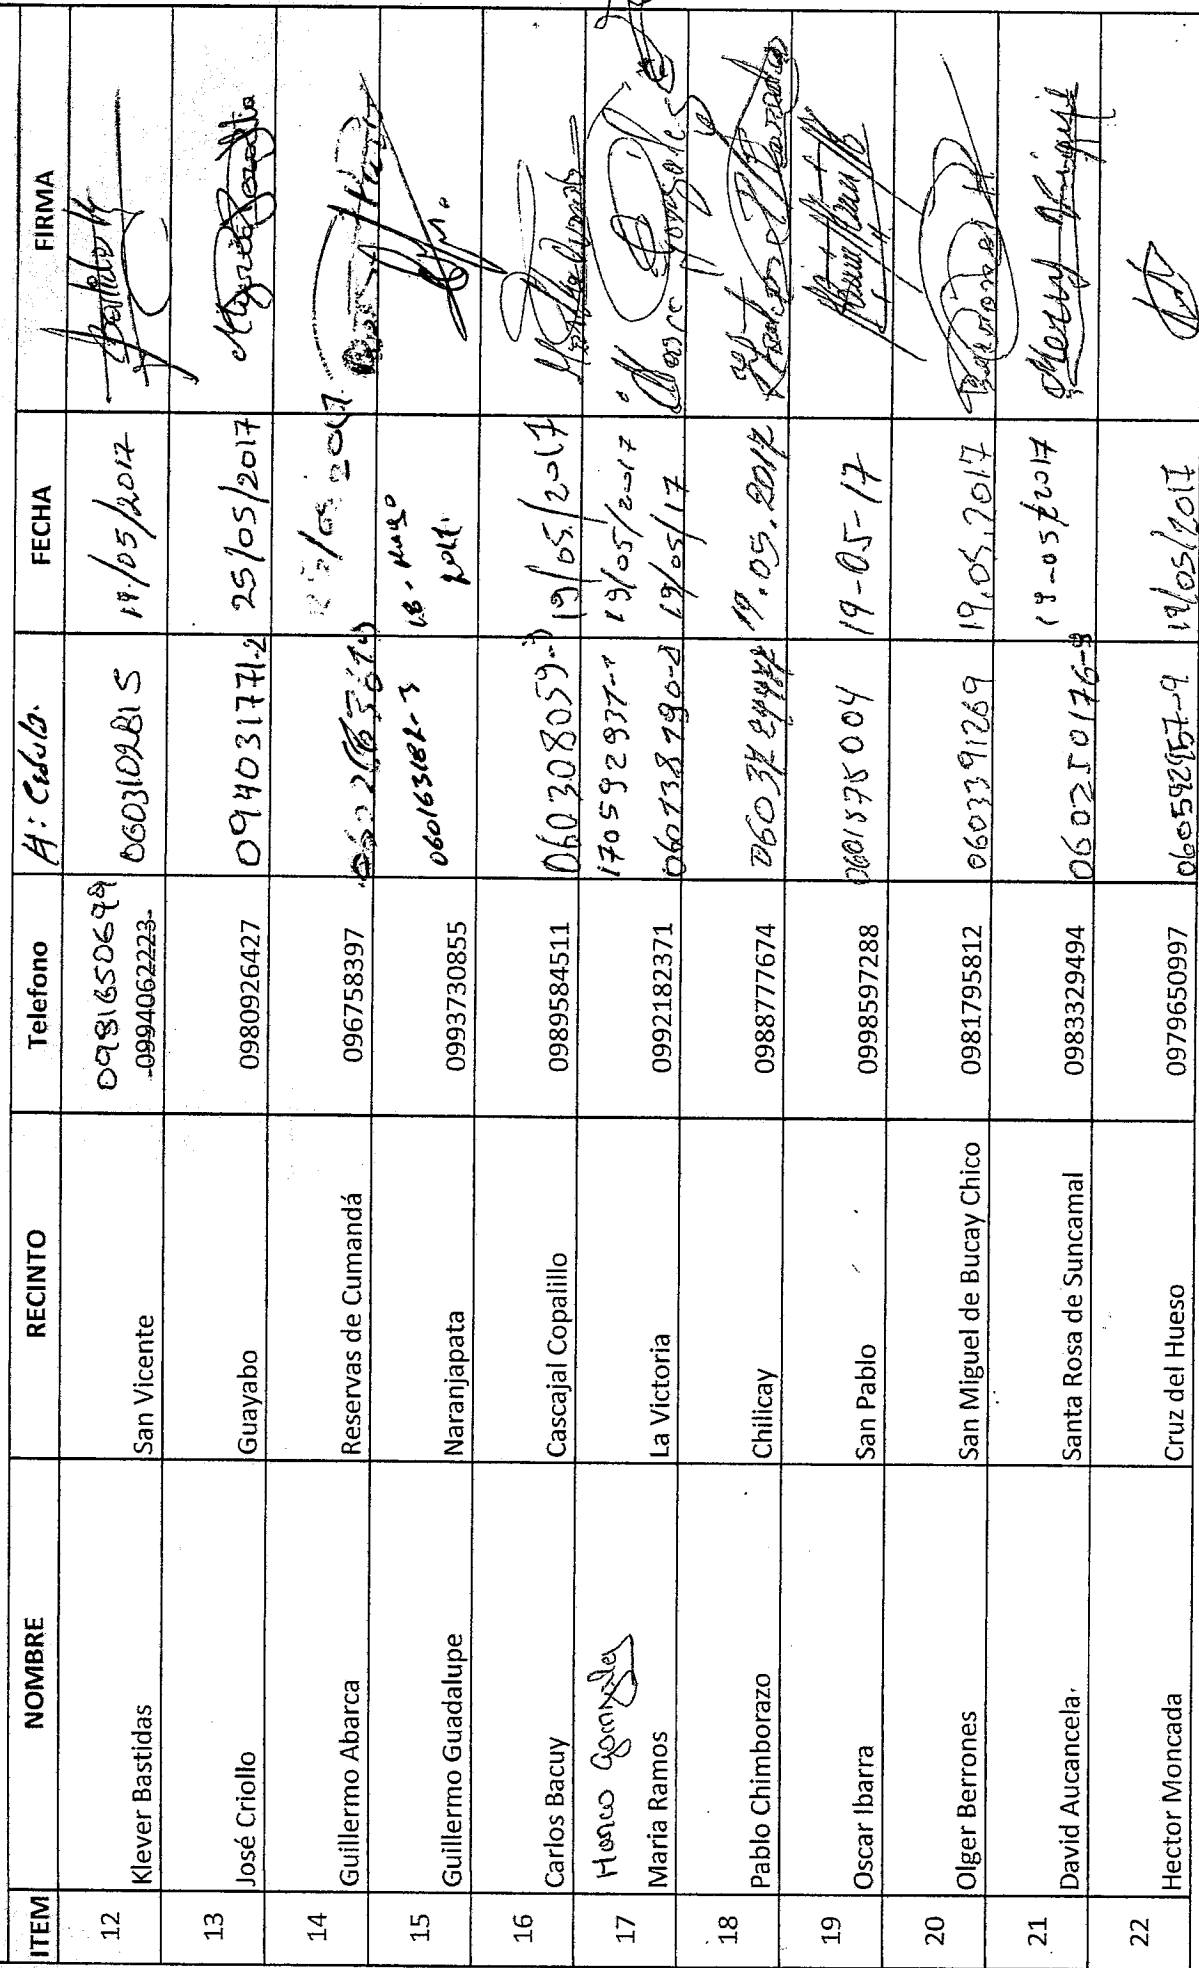 ITEM NOMBRE RECINTO Telefono #: Cedula. FECHA FIRMA
0981650699
12 Klever Bastidas San Vicente 0994062223 0603102815 19/05/2017
13 José Criollo Guayabo 0980926427 094031771-2 25/05/2017
14 Guillermo Abarca Reservas de Cumandá 0967583​97 2017
15 Guillermo Guadalupe Naranjapata 0993730855 060163182-3 18.
16 Carlos Bacuy Cascajal Copalillo 0989584511 060308059- 19/05/2017
Marco Gonzales 170592937-1 19/05/2017
17 Maria Ramos La Victoria 0992182371 060138790-2 19/05/17 Marco Gonzales
18 Pablo Chimborazo Chilicay 0988777674 19.05.2017
19 Oscar Ibarra San Pablo 0998597288 0601575004 19-05-17
20 Olger Berrones San Miguel de Bucay Chico 0981795812 0603391269 19.05.2017
21 David Aucancela Santa Rosa de Suncamal 0983329494 060250176-9 19-05/2017
22 Hector Moncada Cruz del Hueso 0979650997 060592957-9 19/05/2017